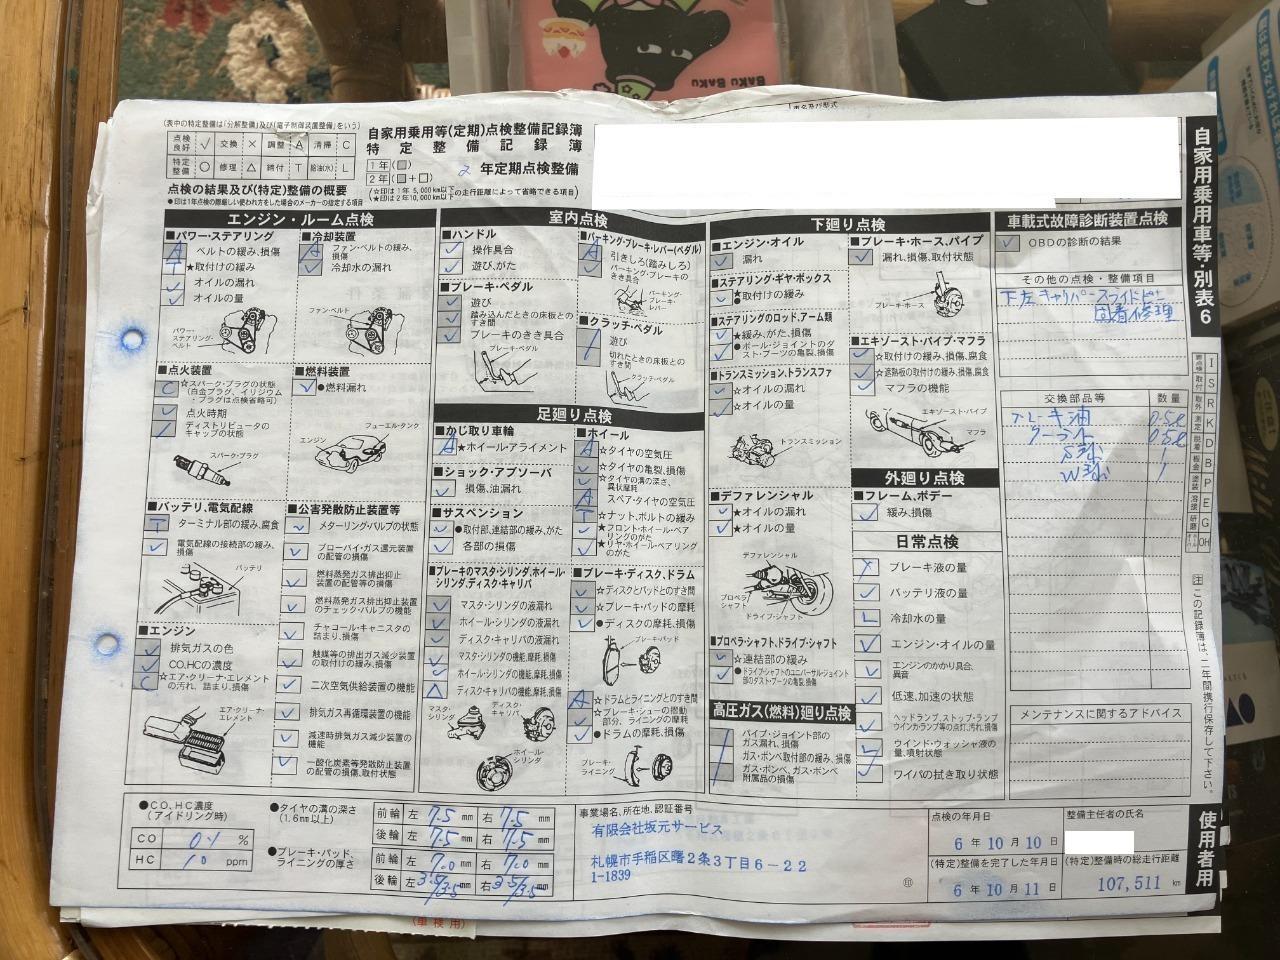 BAKU BAKU
(表中の特定整備は「分解整備」及び「電子制御装置整備」をいう)
点検良好 ✓ 交換 × 調整 A 清掃 C
特定整備 ○ 修理 △ 締付 T 給油(水) L
自家用乗用等(定期)点検整備記録簿
特定整備記録簿
1年(□)
2年(□+□)
2 年定期点検整備
(☆印は1年 5,000km以下の走行距離によって省略できる項目)
(★印は2年10,000km以下
点検の結果及び(特定)整備の概要
●印は1年点検の際厳しい使われ方をした場合のメーカーの指定する項目
自家用乗用車等・別表6
エンジン・ルーム点検
■パワー・ステアリング
A ベルトの緩み、損傷
T ★取付けの緩み
✓ オイルの漏れ
✓ オイルの量
パワー・ステアリング・ベルト
■冷却装置
A ファン・ベルトの緩み、損傷
✓ 冷却水の漏れ
ファン・ベルト
■点火装置
C ☆スパーク・プラグの状態
(白金プラグ、イリジウム・プラグは点検省略可)
✓ 点火時期
ディストリビュータのキャップの状態
スパーク・プラグ
■燃料装置
✓ ●燃料漏れ
フューエル・タンク
エンジン
■バッテリ、電気配線
T ターミナル部の緩み、腐食
✓ 電気配線の接続部の緩み、損傷
バッテリ
■公害発散防止装置等
✓ メターリング・バルブの状態
✓ ブローバイ・ガス還元装置の配管の損傷
✓ 燃料蒸発ガス排出抑止装置の配管等の損傷
✓ 燃料蒸発ガス排出抑止装置のチェック・バルブの機能
✓ チャコール・キャニスタの詰まり、損傷
✓ 触媒等の排出ガス減少装置の取付けの緩み、損傷
✓ 二次空気供給装置の機能
✓ 排気ガス再循環装置の機能
✓ 減速時排気ガス減少装置の機能
✓ 一酸化炭素等発散防止装置の配管の損傷、取付状態
■エンジン
✓ 排気ガスの色
✓ CO、HCの濃度
C ☆エア・クリーナ・エレメントの汚れ、詰まり、損傷
エア・クリーナ・エレメント
室内点検
■ハンドル
✓ 操作具合
✓ 遊び、がた
■ブレーキ・ペダル
✓ 遊び
✓ 踏み込んだときの床板とのすき間
✓ ブレーキのきき具合
ブレーキ・ペダル
■パーキング・ブレーキ・レバー(ペダル)
A 引きしろ(踏みしろ)
パーキング・ブレーキのきき具合
パーキング・ブレーキ・レバー
■クラッチ・ペダル
遊び
切れたときの床板とのすき間
クラッチ・ペダル
足廻り点検
■かじ取り車輪
A ★ホイール・アライメント
■ショック・アブソーバ
✓ 損傷、油漏れ
■サスペンション
✓ ●取付部、連結部の緩み、がた
✓ 各部の損傷
■ホイール
A ☆タイヤの空気圧
✓ ☆タイヤの亀裂、損傷
✓ ☆タイヤの溝の深さ、異状摩耗
A スペア・タイヤの空気圧
T ☆ナット、ボルトの緩み
✓ ★フロント・ホイール・ベアリングのがた
✓ ★リヤ・ホイール・ベアリングのがた
■ブレーキのマスタ・シリンダ、ホイール・シリンダ、ディスク・キャリパ
✓ マスタ・シリンダの液漏れ
✓ ホイール・シリンダの液漏れ
✓ ディスク・キャリパの液漏れ
✓ マスタ・シリンダの機能、摩耗、損傷
✓ ホイール・シリンダの機能、摩耗、損傷
△ ディスク・キャリパの機能、摩耗、損傷
マスタ・シリンダ
ディスク・キャリパ
ホイール・シリンダ
■ブレーキ・ディスク、ドラム
✓ ☆ディスクとパッドとのすき間
✓ ☆ブレーキ・パッドの摩耗
✓ ●ディスクの摩耗、損傷
ブレーキ・パッド
A ☆ドラムとライニングとのすき間
✓ ☆ブレーキ・シューの摺動部分、ライニングの摩耗
✓ ●ドラムの摩耗、損傷
ブレーキ・ライニング
下廻り点検
■エンジン・オイル
✓ 漏れ
■ステアリング・ギヤ・ボックス
✓ ★●取付けの緩み
■ステアリングのロッド、アーム類
✓ ★緩み、がた、損傷
✓ ●ボール・ジョイントのダスト・ブーツの亀裂、損傷
■トランスミッション、トランスファ
✓ ☆オイルの漏れ
✓ ☆オイルの量
トランスミッション
■デファレンシャル
✓ ★オイルの漏れ
✓ ★オイルの量
デファレンシャル
プロペラ・シャフト
ドライブ・シャフト
■プロペラ・シャフト、ドライブ・シャフト
✓ ☆連結部の緩み
✓ ●ドライブ・シャフトのユニバーサル・ジョイント部のダスト・ブーツの亀裂、損傷
高圧ガス(燃料)廻り点検
パイプ・ジョイント部のガス漏れ、損傷
ガス・ボンベ取付部の緩み、損傷
ガス・ボンベ、ガス・ボンベ附属品の損傷
■ブレーキ・ホース、パイプ
✓ 漏れ、損傷、取付状態
ブレーキ・ホース
■エキゾースト・パイプ、マフラ
✓ ☆取付けの緩み、損傷、腐食
✓ ☆遮熱板の取付けの緩み、損傷、腐食
✓ マフラの機能
エキゾースト・パイプ
マフラ
外廻り点検
■フレーム、ボデー
✓ 緩み、損傷
日常点検
× ブレーキ液の量
✓ バッテリ液の量
L 冷却水の量
✓ エンジン・オイルの量
✓ エンジンのかかり具合、異音
✓ 低速、加速の状態
✓ ヘッドランプ、ストップ・ランプウインカランプ等の点灯、汚れ、損傷
ウインド・ウォッシャ液の量、噴射状態
✓ ワイパの拭き取り状態
車載式故障診断装置点検
✓ OBDの診断の結果
その他の点検・整備項目
キャリパースライドピン
固着修理
交換部品等 数量
ブレーキ油 0.5ℓ
クーラント 0.5ℓ
S球 1
W球 1
メンテナンスに関するアドバイス
点検 I
取付 S
取外 R
測定 K
脱着 D
板金 B
塗装 P
溶接 E
研磨 G
OH
注 この記録簿は、二年間携行保存して下さい。
使用者用
●CO、HC濃度
(アイドリング時)
CO %
HC 10 ppm
●タイヤの溝の深さ
(1.6mm以上)
●ブレーキ・パッド、ライニングの厚さ
前輪 左 7.5 mm 右 7.5 mm
後輪 左 7.5 mm 右 7.5 mm
前輪 左 7.0 mm 右 7.0 mm
後輪 左 3.5/3.5 mm 右 3.5/3.5 mm
事業場名、所在地、認証番号
有限会社坂元サービス
札幌市手稲区曙2条3丁目6-22
1-1839
㊞
点検の年月日
6 年 10 月 10 日
(特定)整備を完了した年月日
6 年 10 月 11 日
整備主任者の氏名
(特定)整備時の総走行距離
107,511 km
(車検用)